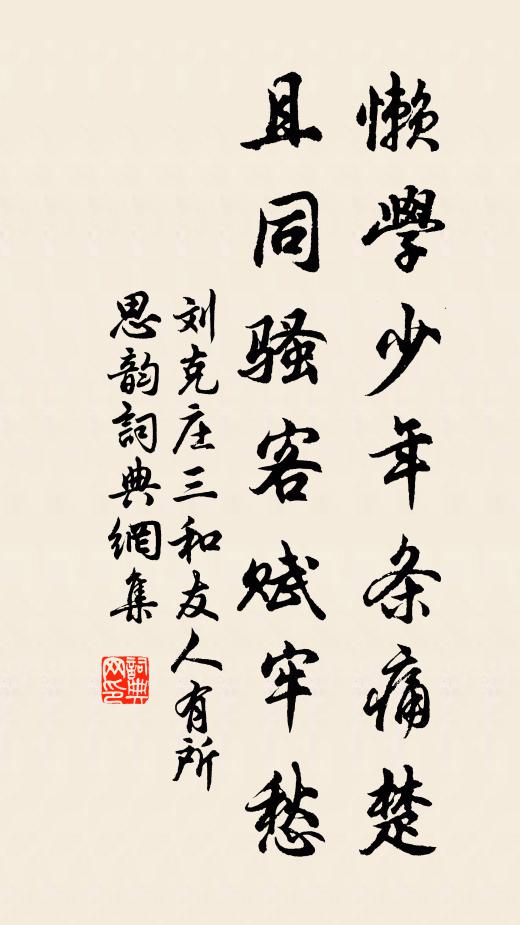 懒學少年条痛楚
且同骚客赋牢愁
刘克庄三和友人有所
思韵詞典網集
詞典
网印